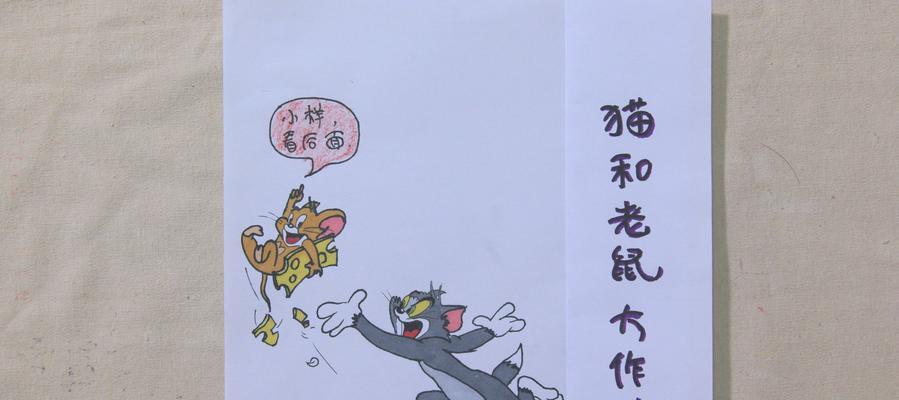 小样，
看后面
猫和老鼠大作